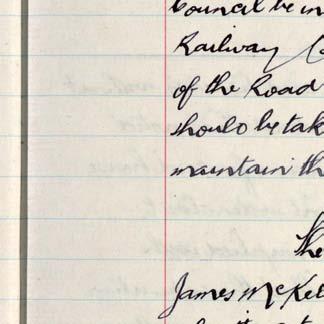 Council be in
Railway
of the Road
should be tak
maintain th
The
James McKel